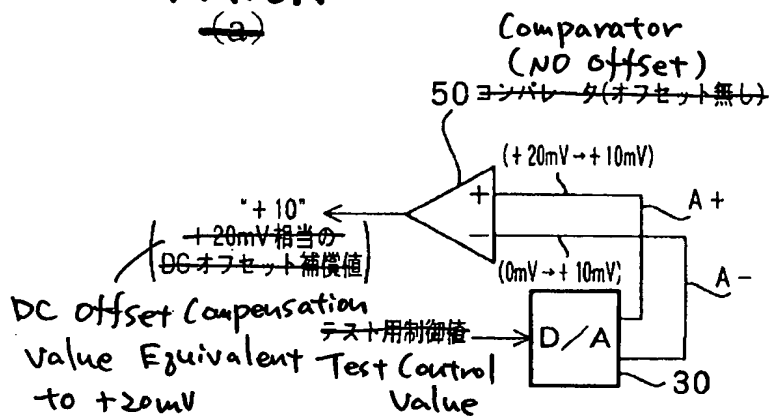 (a)
Comparator
(NO Offset)
50 コンパレータ(オフセット無し)
(+20mV→+10mV)
A+
+
"+10"
+20mV相当の
DCオフセット補償値
−
(0mV→+10mV)
A−
DC Offset Compensation
Value Equivalent
to +20mV
テスト用制御値
Test Control
Value
D/A
30